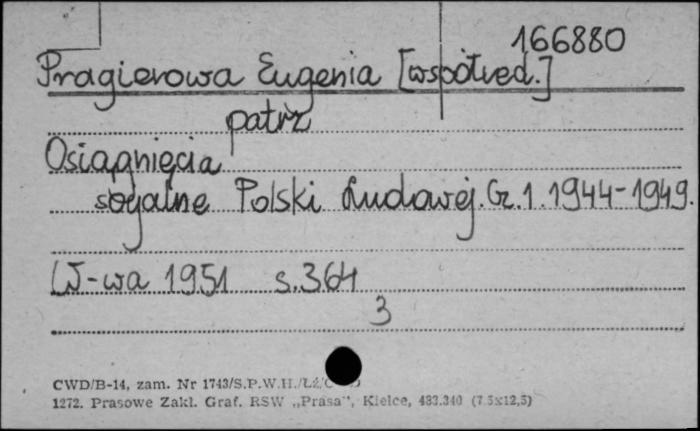 166880
Pragierowa Eugenia [współred.]
patrz
Osiągnięcia
socjalne Polski Ludowej. Cz. 1. 1944-1949.
W-wa 1951 s. 364
3
CWD/B-14, zam. Nr 1743/S.P.W.H./LŹ/
1272. Prasowe Zakl. Graf. RSW „Prasa", Kielce, 483.340 (7.5x12,5)